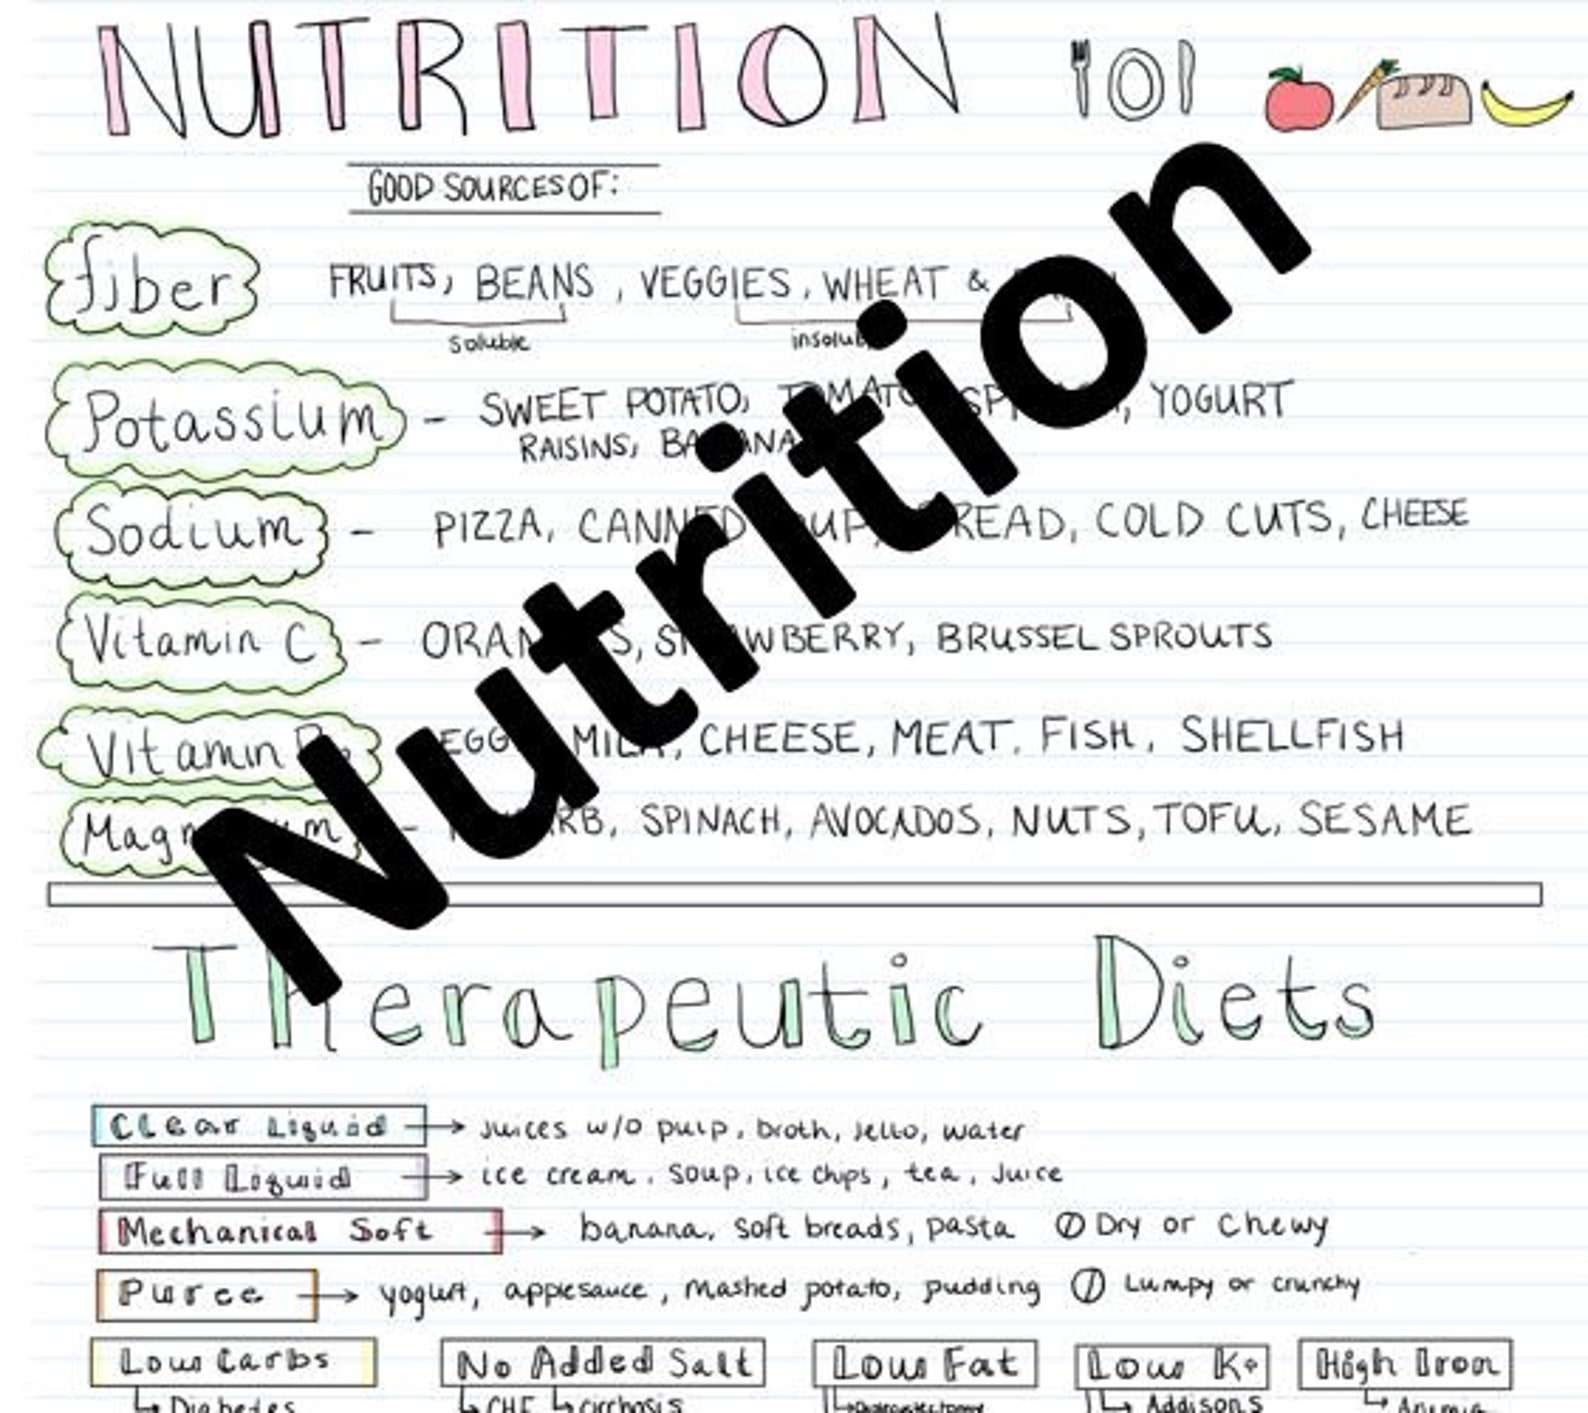 NUTRITION
GOOD SOURCES OF:
fiber FRUITS, BEANS, VEGGIES, WHEAT &
soluble
Potassium - SWEET POTATO, YOGURT
RAISINS,
Sodium - PIZZA, CANNED SOUP, BREAD, COLD CUTS, CHEESE
Vitamin C - ORANGES, STRAWBERRY, BRUSSEL SPROUTS
Vitamin MILK, CHEESE, MEAT. FISH, SHELLFISH
Magnesium - SPINACH, AVOCADOS, NUTS, TOFU, SESAME
Nutrition
Therapeutic Diets
Clear Liquid → juices w/o pulp, broth, jello, water
Full Liquid → ice cream, soup, ice chips, tea, juice
Mechanical Soft → banana, soft breads, pasta Dry or Chewy
Puree → yogurt, applesauce, mashed potato, pudding Lumpy or crunchy
Low Carbs No Added Salt Low Fat Low K+ High Iron
Diabetes CHF cirrhosis Addisons Anemia